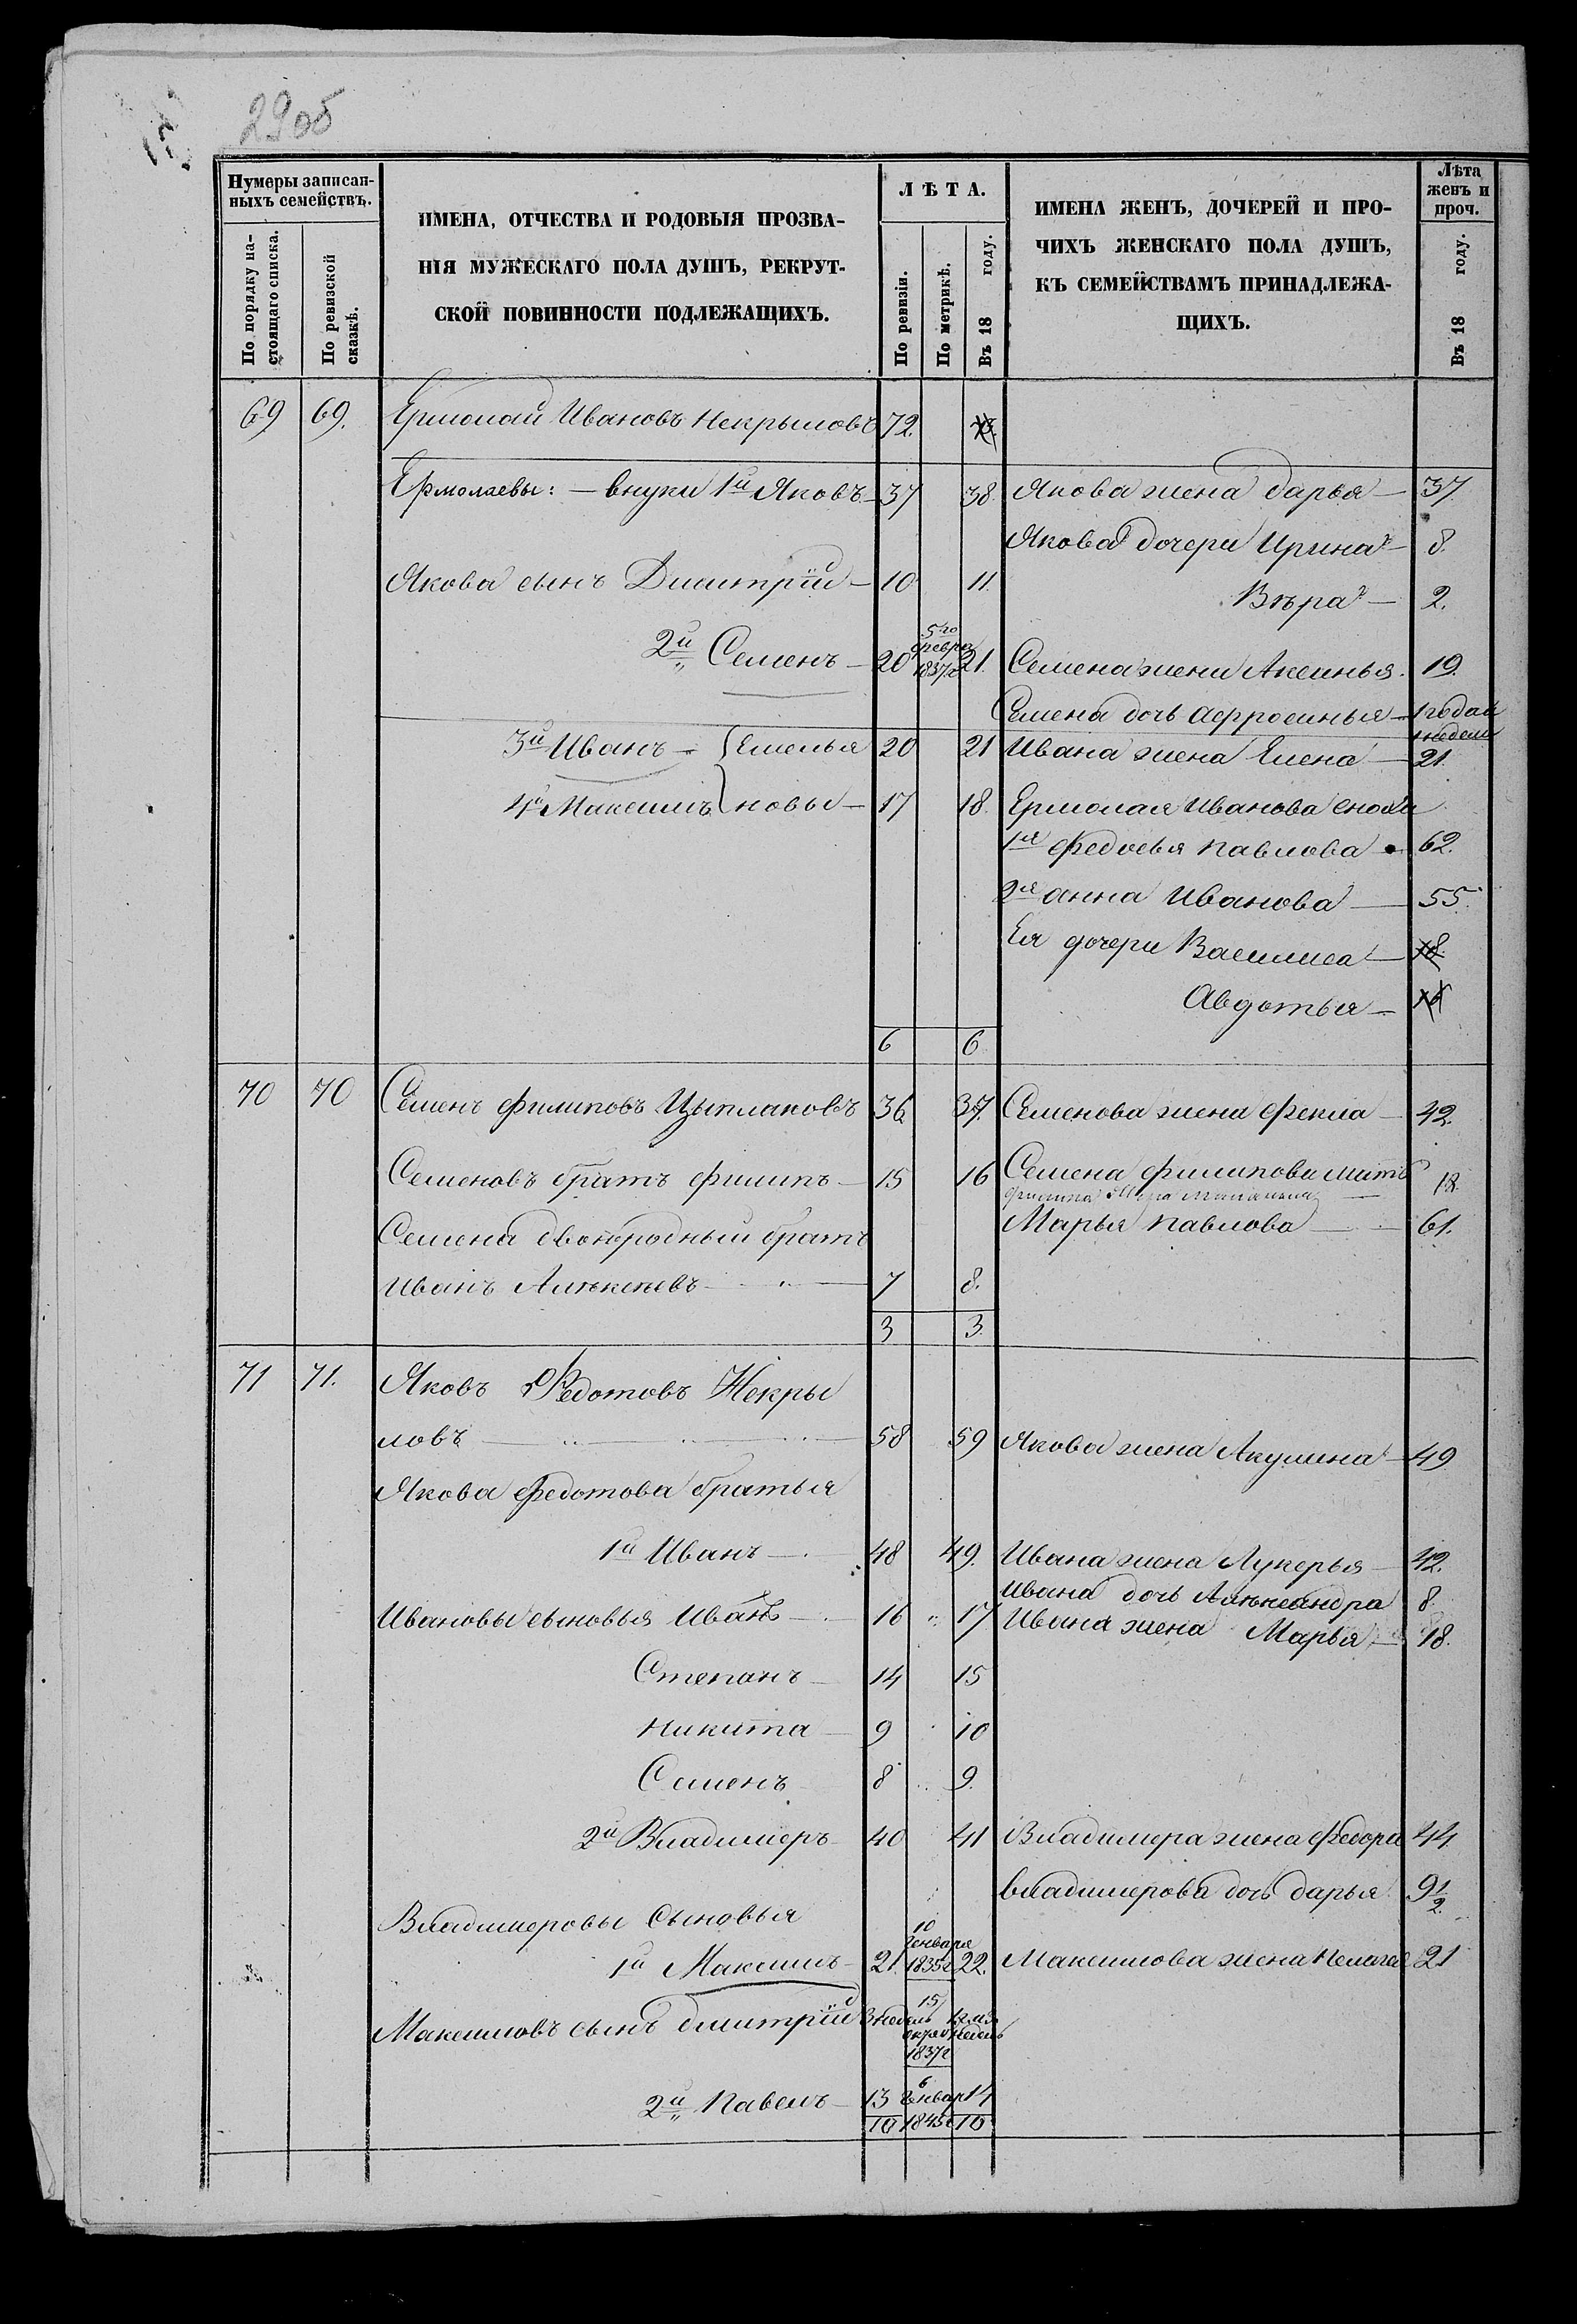 29об
Нумеры записан-
ныхъ семействъ.
По порядку на-
стоящаго списка.
По ревизской
сказкѣ.
ИМЕНА, ОТЧЕСТВА И РОДОВЫЯ ПРОЗВА-
НІЯ МУЖЕСКАГО ПОЛА ДУШЪ, РЕКРУТ-
СКОЙ ПОВИННОСТИ ПОДЛЕЖАЩИХЪ.
ЛѢТА.
По ревизіи.
По метрикѣ.
Въ 18 году.
ИМЕНА ЖЕНЪ, ДОЧЕРЕЙ И ПРО-
ЧИХЪ ЖЕНСКАГО ПОЛА ДУШЪ,
КЪ СЕМЕЙСТВАМЪ ПРИНАДЛЕЖА-
ЩИХЪ.
Лѣта
женъ и
проч.
Въ 18 году.
69 69. Ермолай Ивановъ Некрыловъ 72.
Ермолаевы: — внуки 1й Яковъ — 37 38. Якова жена дарья — 37
Якова дочери Ирина — 8.
Якова сынъ Дмитрій — 10 11.
Вѣра — 2.
2й Семенъ — 20 5го февра 1837г 21. Семена жена Аксинья. 19.
Семена дочь Афросинья —
3й Иванъ — Емелья 20 21 Ивана жена Елена — 21.
4й Максимъ новы — 17 18. Ермолая Иванова снохи
1я федосья павлова 62.
2я анна Иванова — 55.
Ея дочери Василиса —
Авдотья —
6 6
70 70 Семенъ филиповъ Цыплаковъ 36 37. Семенова жена фекла — 42.
Семеновъ братъ филипъ — 15 16 Семена филипова мать
18.
Марья павлова — 61.
Семена двоюродный братъ
Иванъ Алѣксѣевъ — 7 8.
3 3.
71 71. Яковъ Федотовъ Некры
ловъ — 58 59 Якова жена Акулина — 49
Якова федотова братья
1й Иванъ — 48 49. Ивана жена Лукерья — 42.
Ивана дочь Алѣксандра 8.
Ивановы сыновья Иванъ — 16 17 Ивана жена Марья — 18.
Степанъ — 14 15
Никита — 9 10
Семенъ 8 9.
2й Владимеръ — 40 41 Владимера жена федора 44
владимерова дочь дарья 9 1/2
Владимеровы Сыновья
1й Максимъ — 21. 10 Генваря 1835г 22. Максимова жена Пелагея 21
Максимовъ сынъ дмитрій 3 недель 15 1837г
2й Павелъ — 13 6 Генвар 1845г 14
10 10